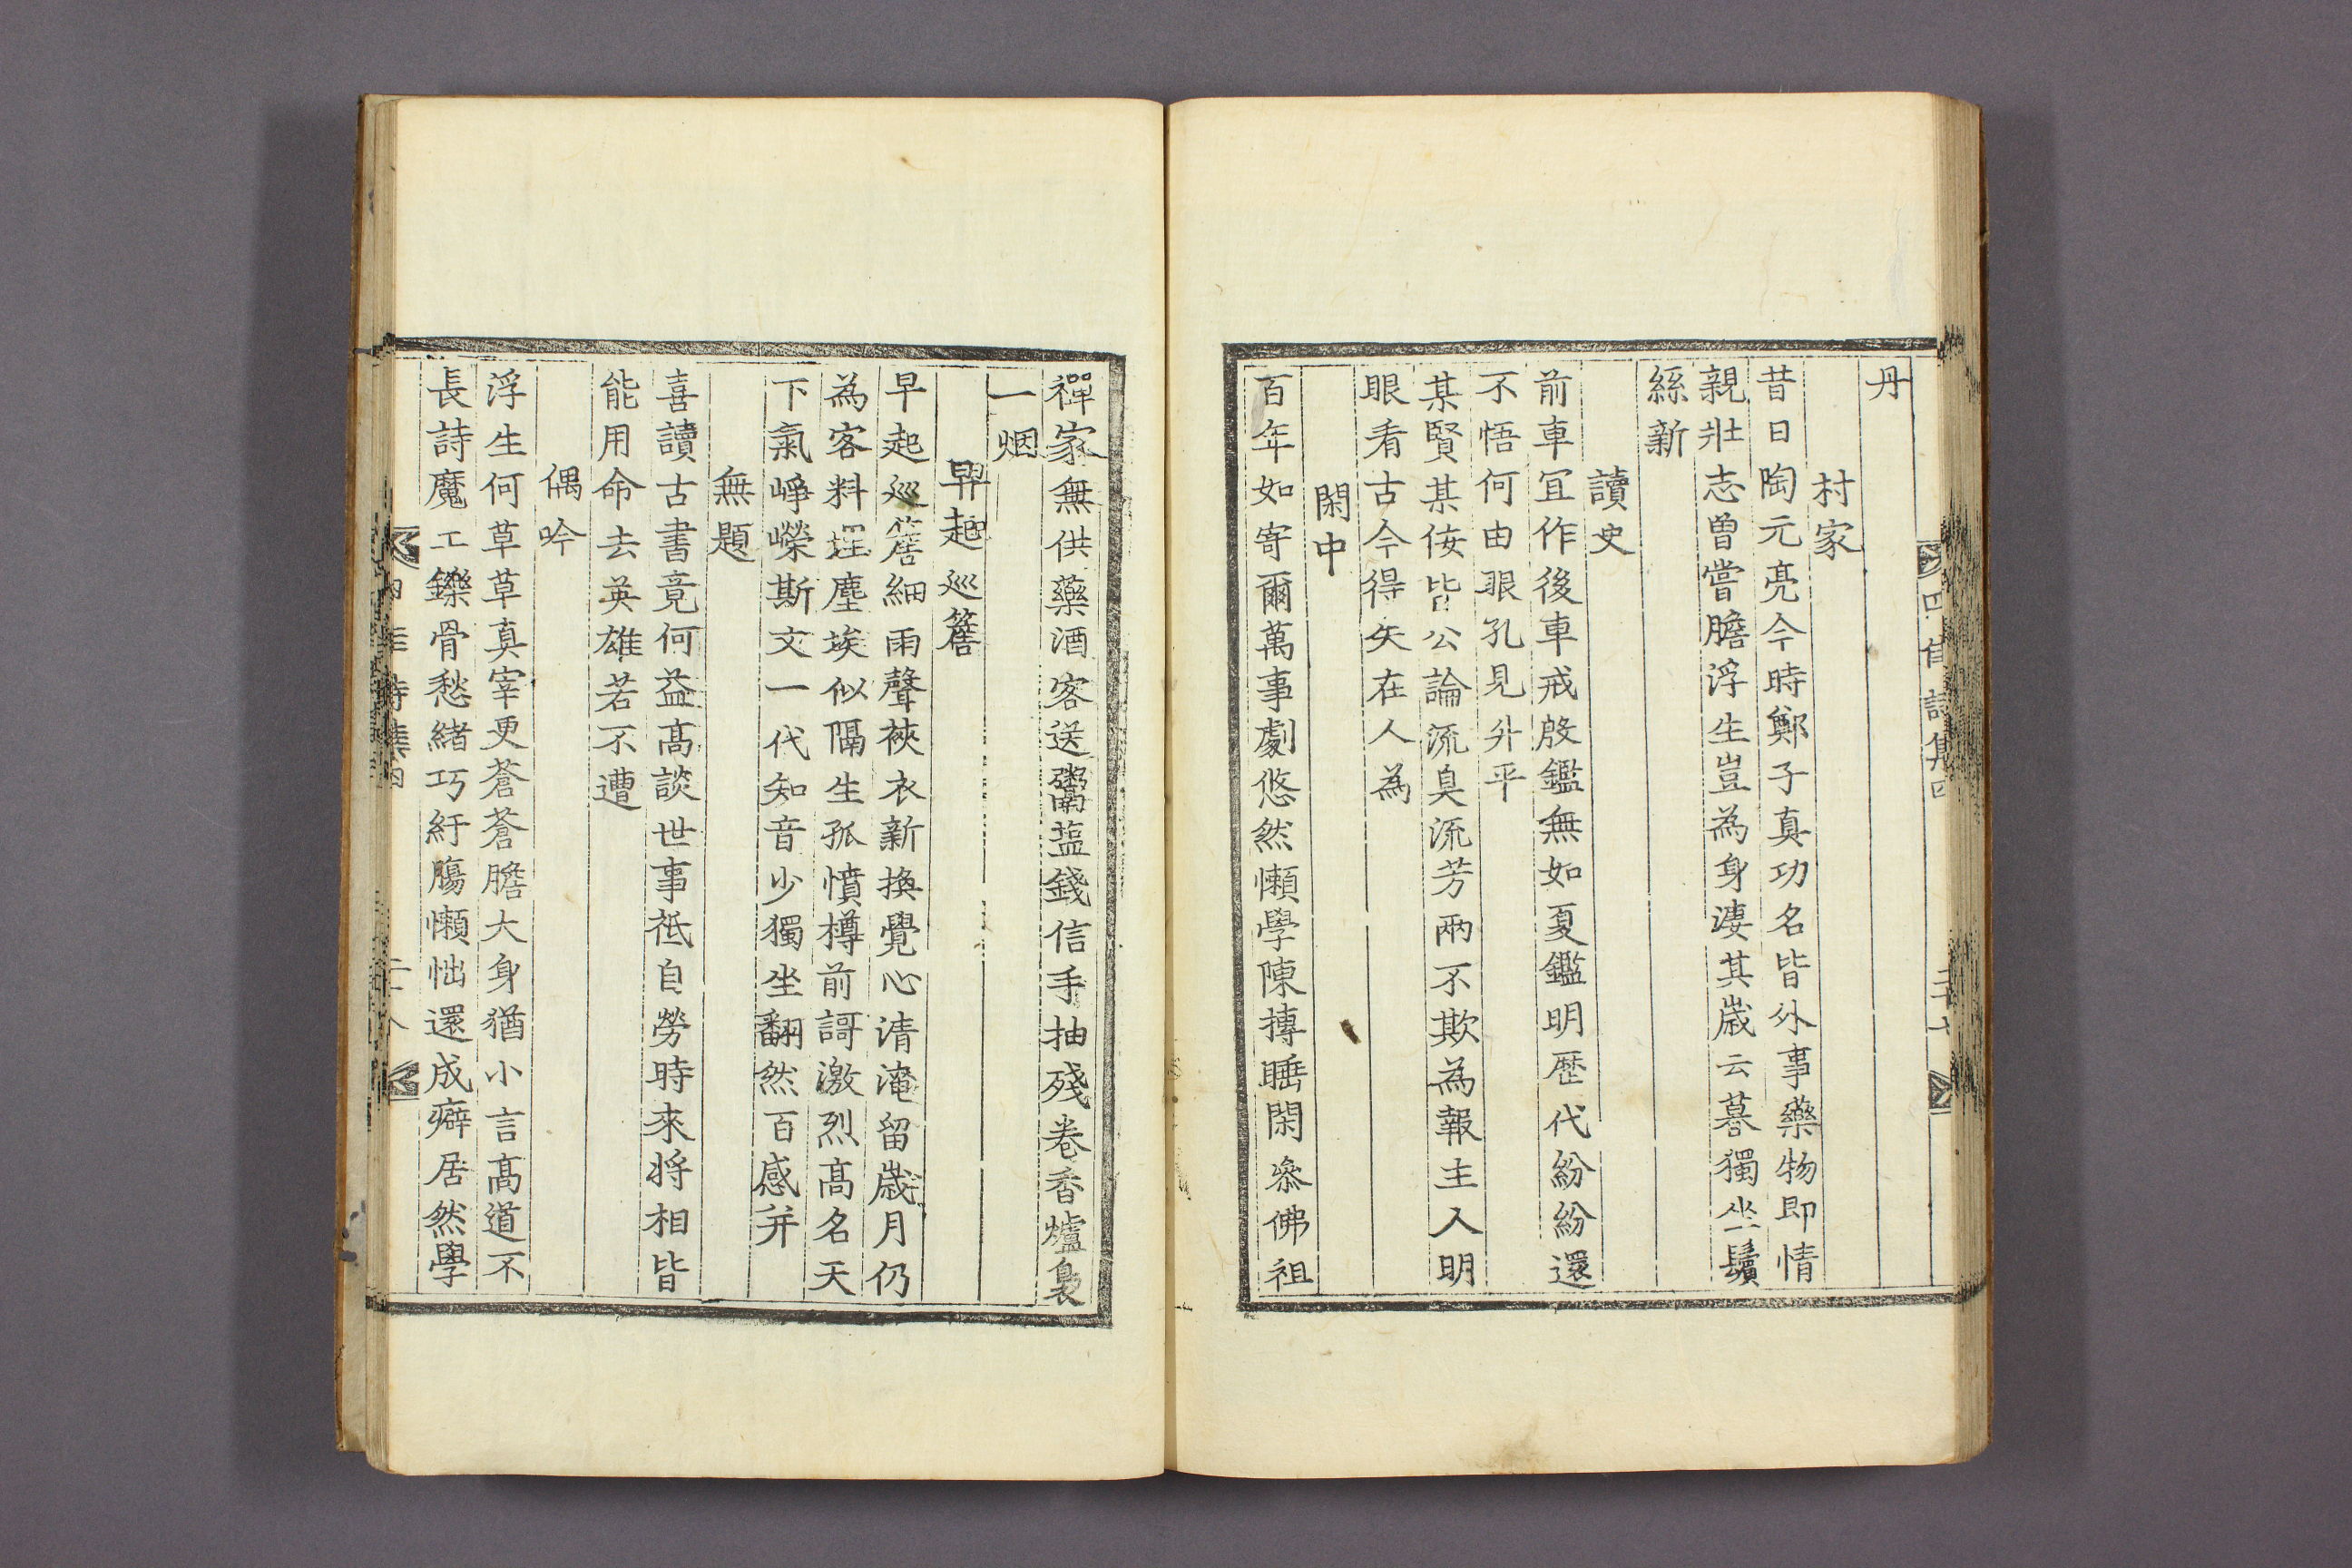 丹
村家
昔日陶元亮今時鄭子真功名皆外事藥物即情
親壯志曾嘗膽浮生豈為身淒其歲云暮獨坐鬢
絲新
讀史
前車宜作後車戒殷鑑無如夏鑑明歷代紛紛還
不悟何由眼孔見升平
某賢某佞皆公論流臭流芳兩不欺為報主人明
眼看古今得失在人為
閑中
百年如寄爾萬事劇悠然懶學陳摶睡閑參佛祖
禪家無供藥酒客送粥盐錢信手抽殘卷香爐裊
一烟
早起巡簷
早起巡簷細雨聲裌衣新換覺心清淹留歲月仍
為客料理塵埃似隔生孤憤樽前謌激烈高名天
下氣崢嶸斯文一代知音少獨坐翻然百感并
無題
喜讀古書竟何益高談世事祗自勞時來將相皆
能用命去英雄若不遭
偶吟
浮生何草草真宰更蒼蒼膽大身猶小言高道不
長詩魔工鑠骨愁緒巧紆腸懶拙還成癖居然學